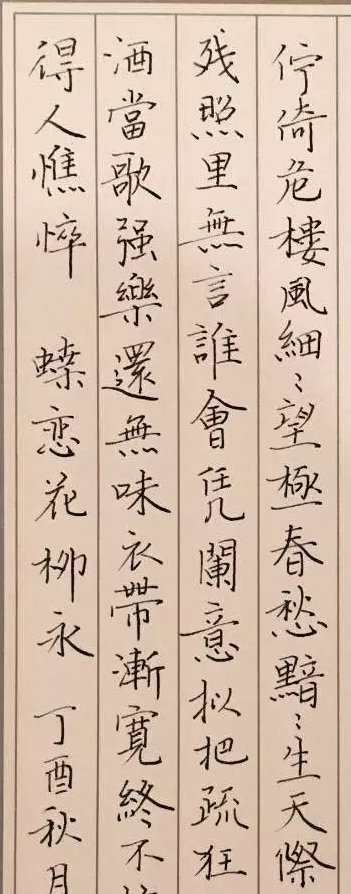 佇倚危樓風細〻望極春愁黯〻生天際
残照里無言誰會凭闌意拟把疏狂
酒當歌强樂還無味衣帶漸寬終不
得人憔悴 蝶恋花柳永 丁酉秋月